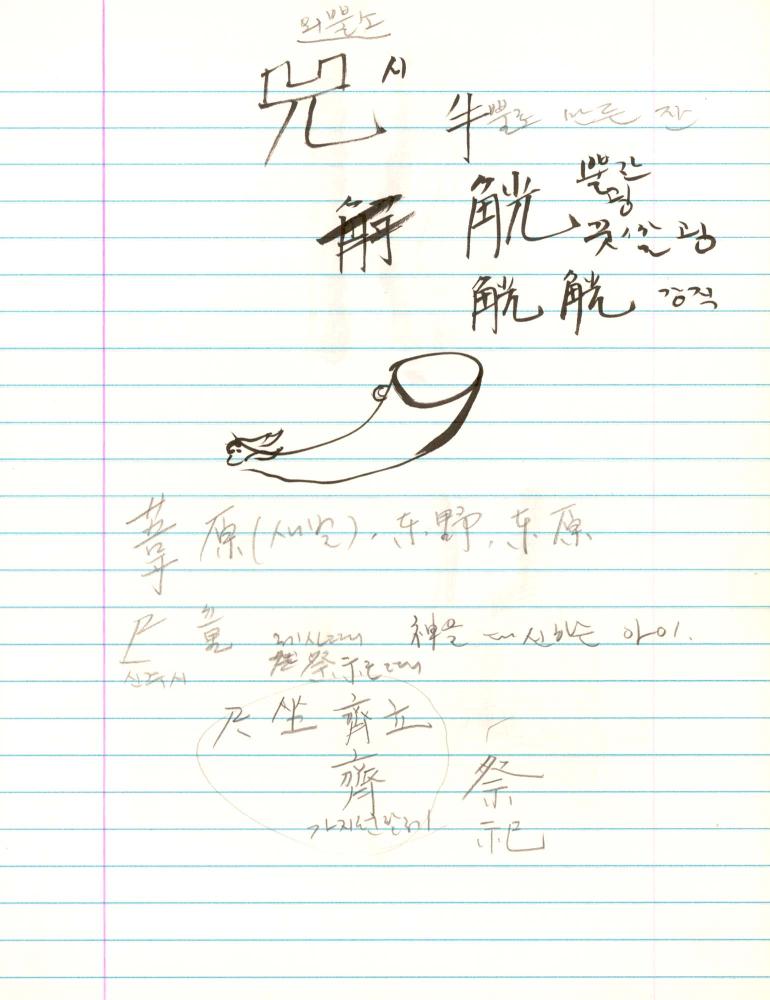 외뿔소
兕 시
牛뿔로 만든 잔
觥 뿔잔
굉
解 굉
觥 觥 강직
原(새밭), 东野, 东原
尸 童 제사때 神을 대신하는 아이.
신주시 祭示E때
尸 坐 齊 立
齊 祭
가지런할 祀